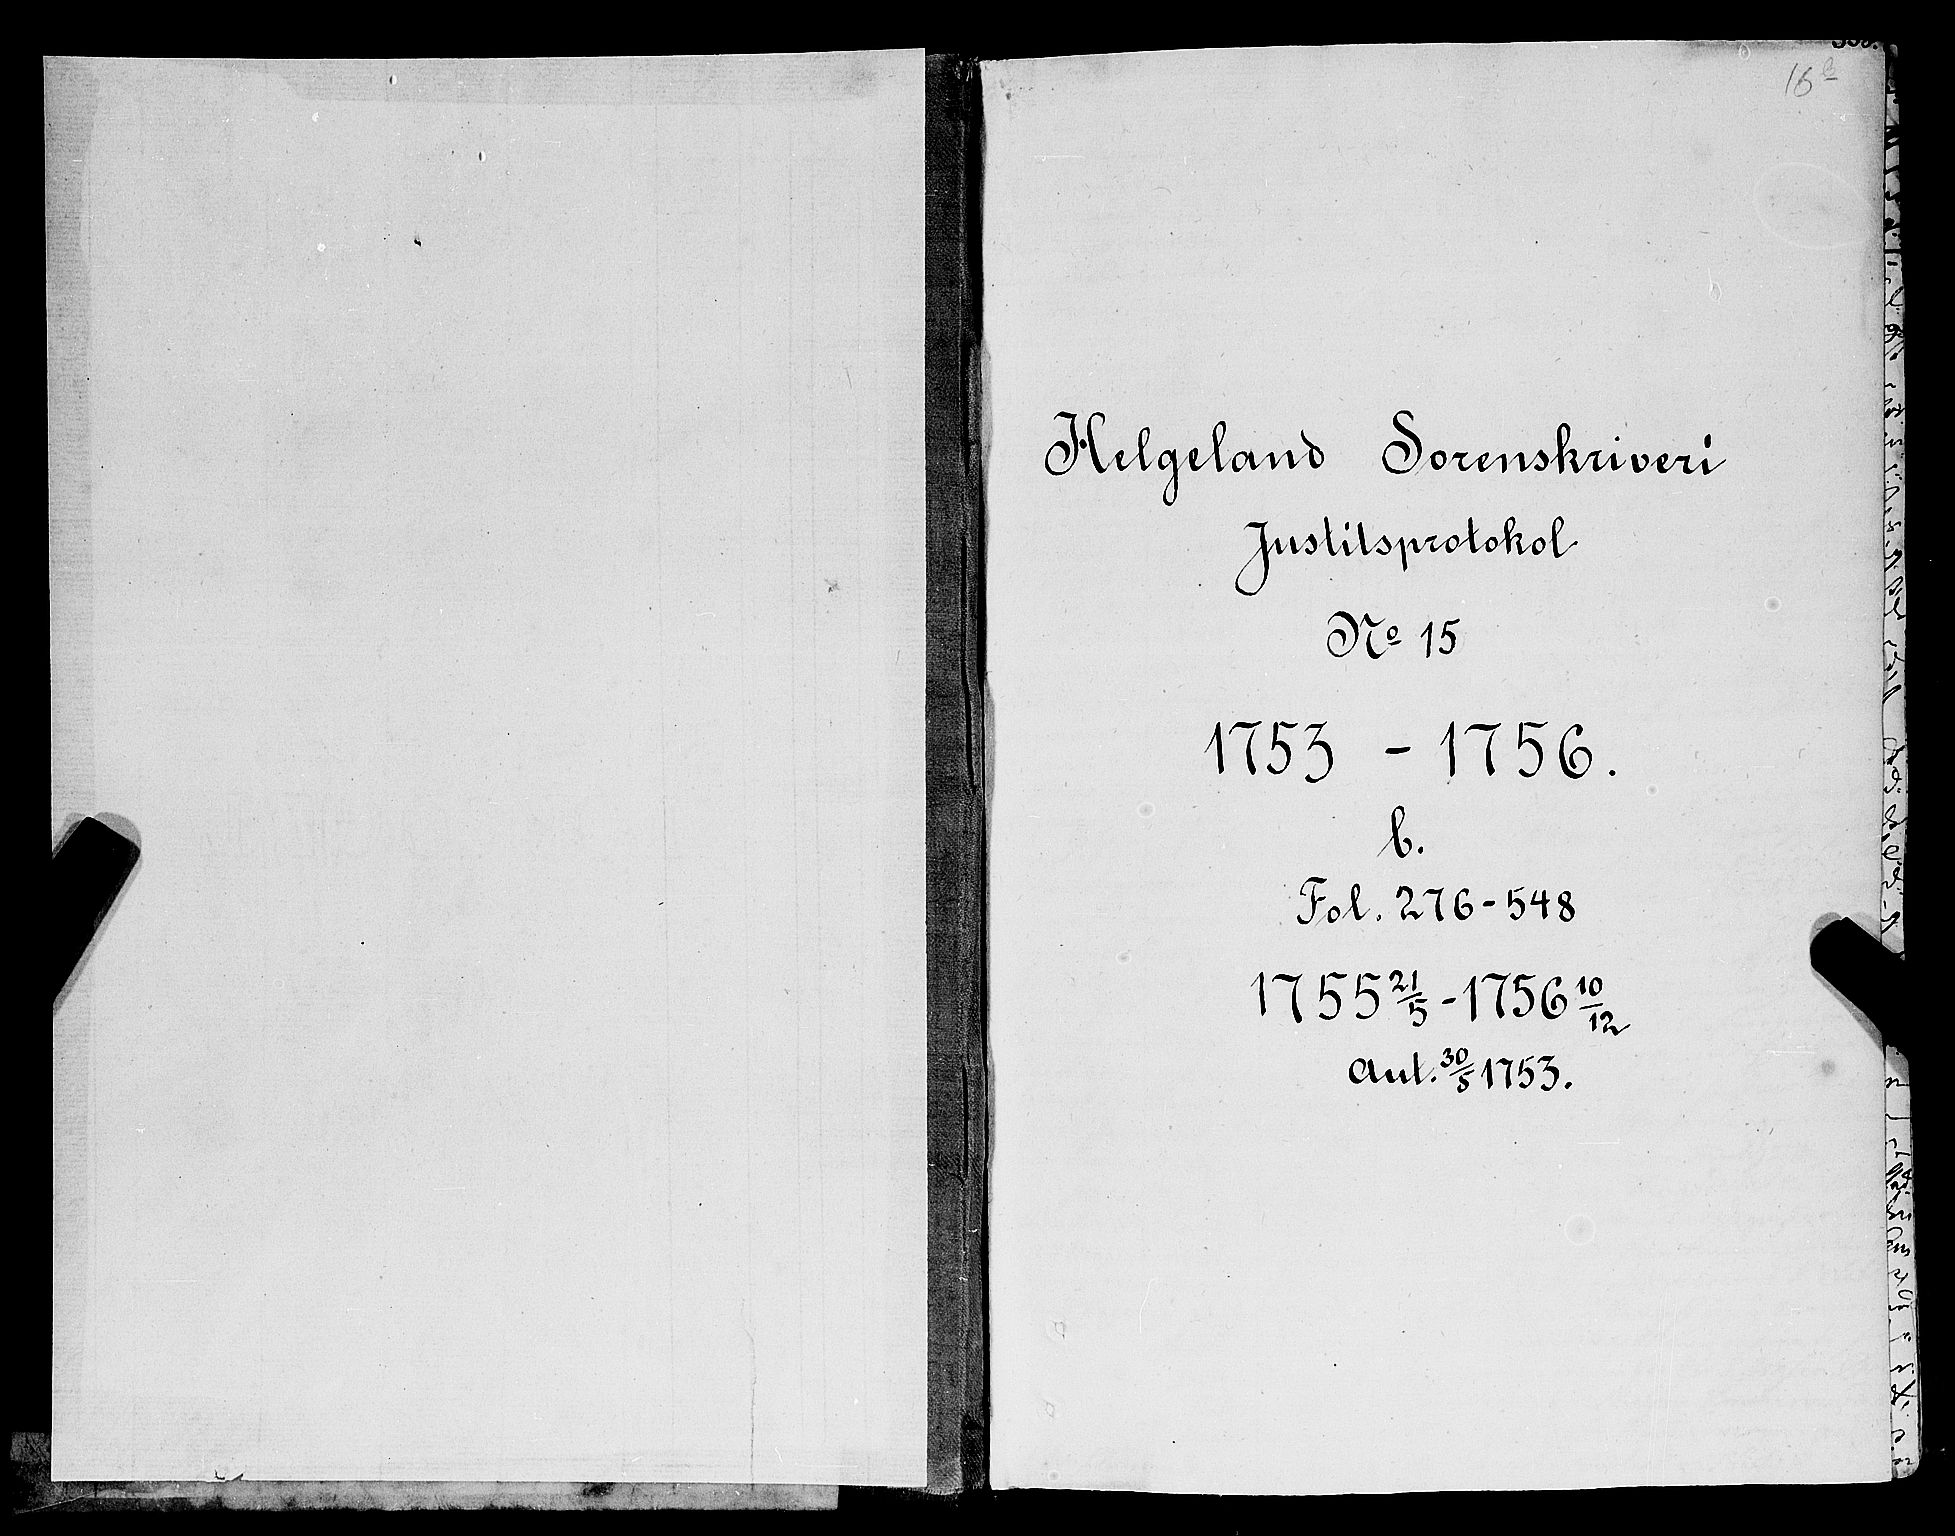 15 b
Helgeland Sorenskriveri
Justitsprotokol
No 15
1753 - 1756.
b.
Fol. 276-548
1755 21/5 - 1756 10/12
Aut. 30/5 1753.